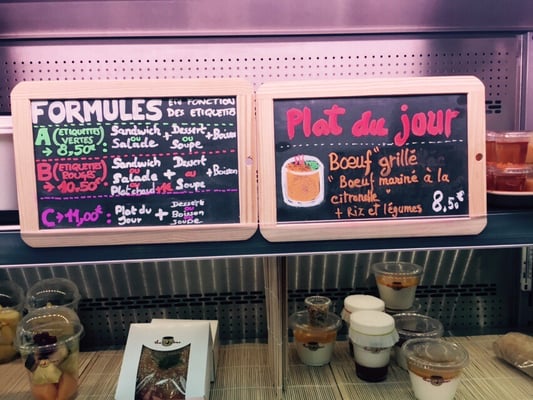 FORMULES EN FONCTION DES ETIQUETTES
A (ETIQUETTES VERTES) → 8,50€: Sandwich ou Salade + Dessert ou Soupe + Boisson
B (ETIQUETTES ROUGES) → 10,50€: Sandwich ou Salade ou Plat chaud + Dessert ou Soupe + Boisson
C → 11,00€: Plat du Jour + Dessert ou Boisson ou Soupe
Plat du jour
"Boeuf" grillé
"Boeuf mariné à la
citronelle
+ Riz et légumes 8,50€